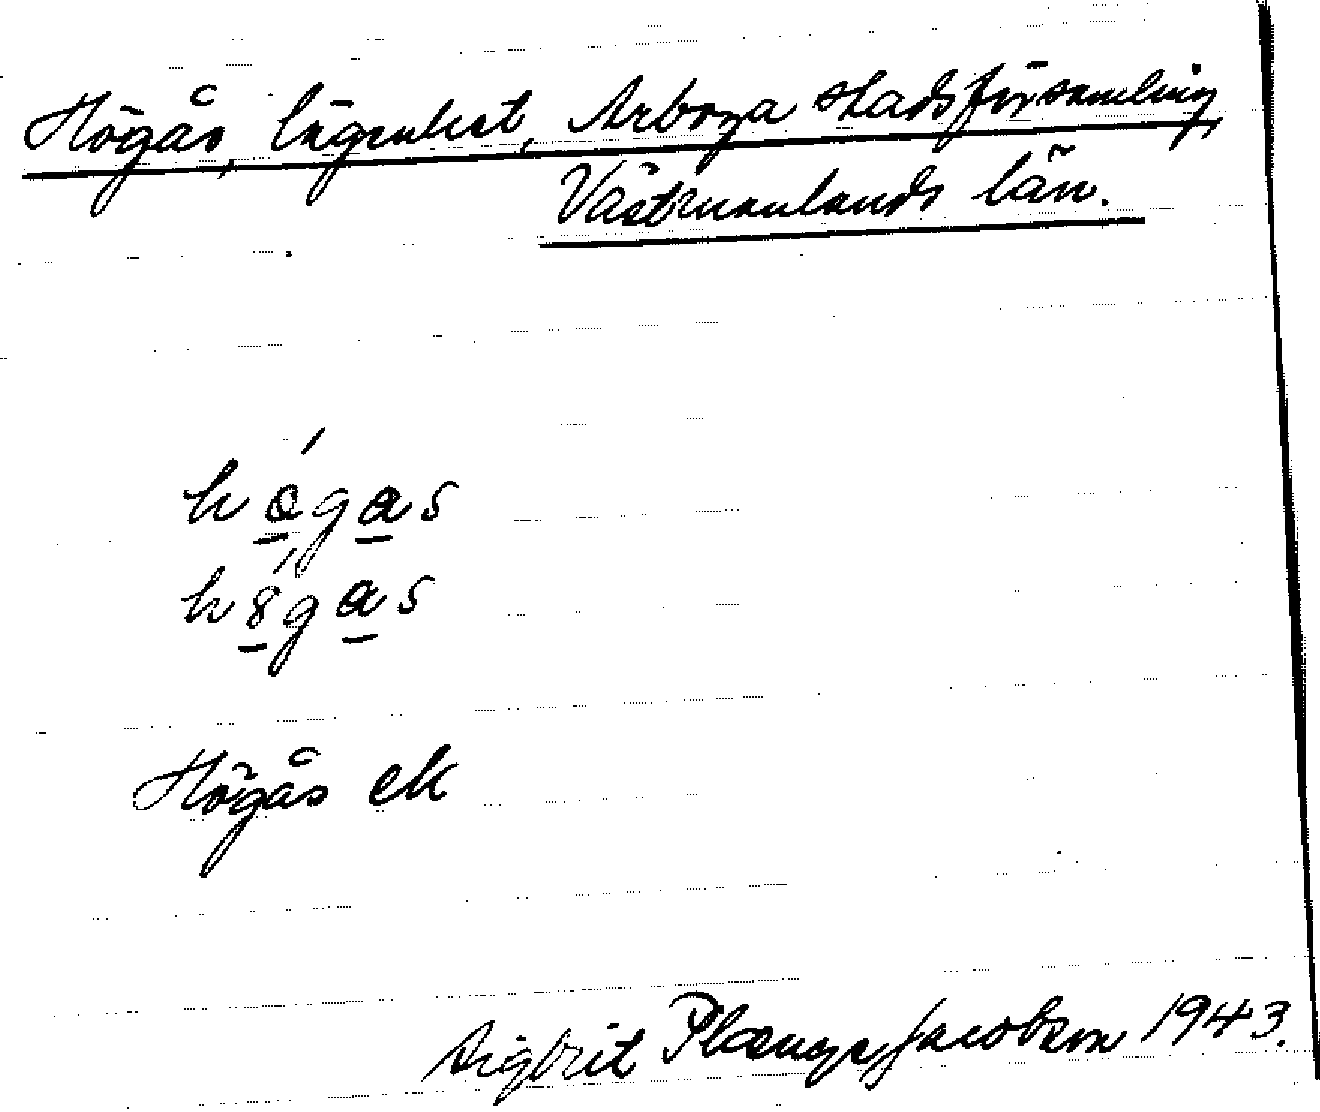 Högås, lägenhet, Arboga stadsförsamling,
Västmanlands län.
hǿgas
högas
Högås ek
Sigbrit Plænge Jacobson 1943.